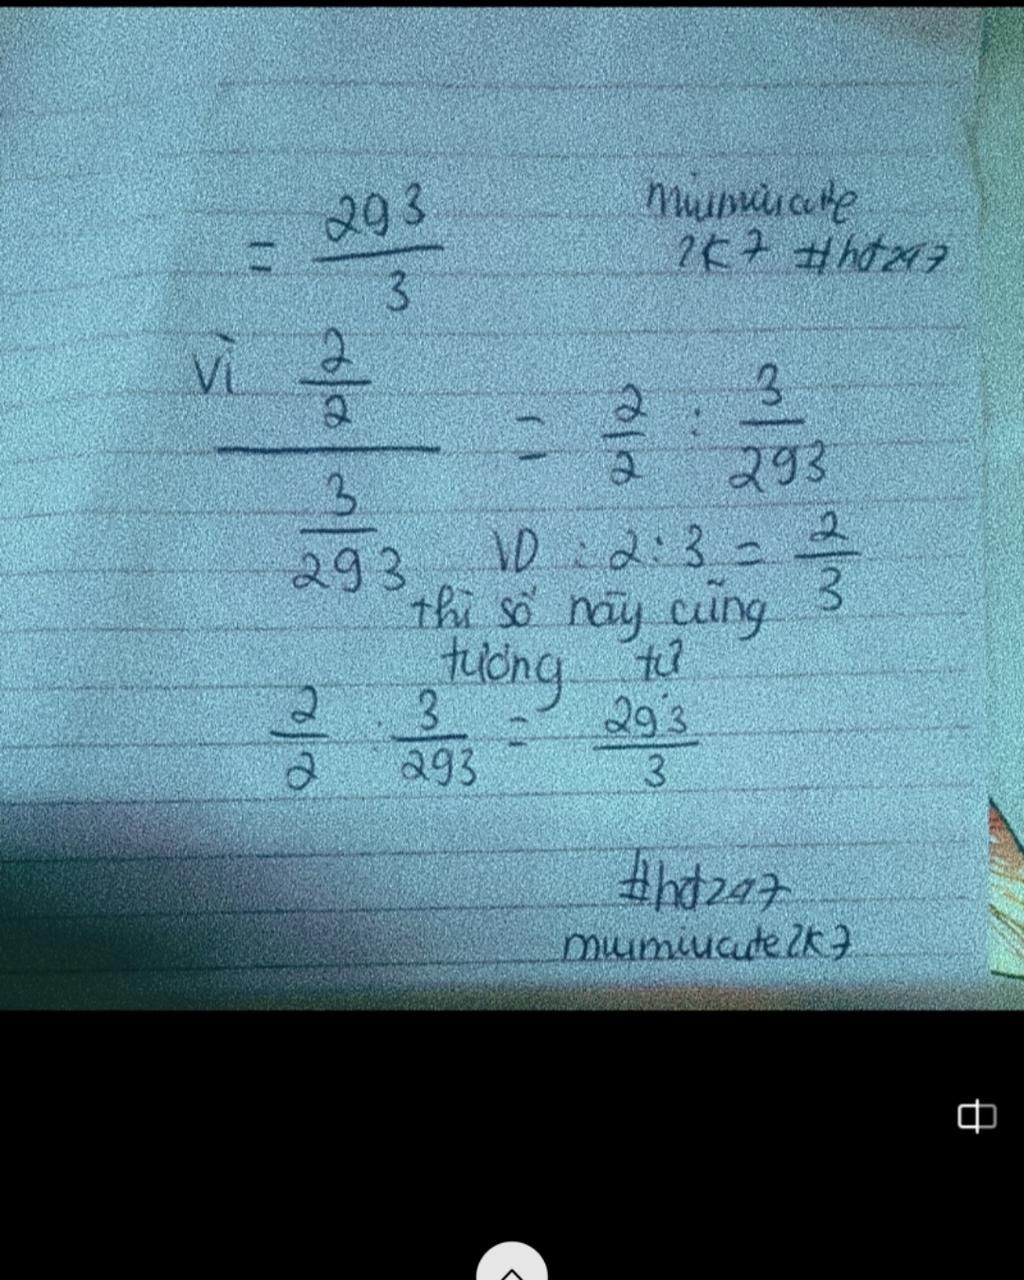 = 293/3
miumiucute
2K7 #hđ247
Vì (2/2)/(3/293) = 2/2 : 3/293
VD : 2:3 = 2/3
thì số này cũng
tương tự
2/2 : 3/293 = 293/3
#hđ247
miumiucute2k7